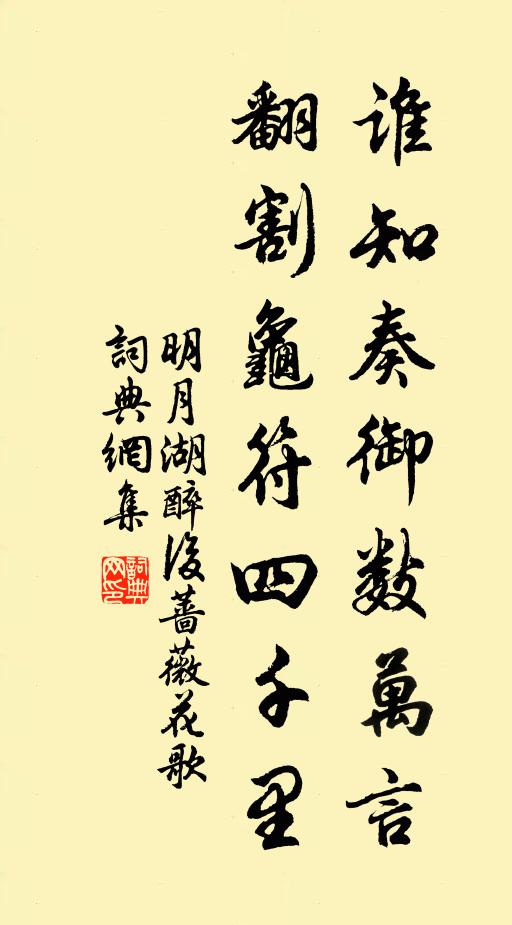 誰知奏御數萬言
翻割龜符四千里
明月湖醉後薔薇花歌
詞典網集
詞典
网印